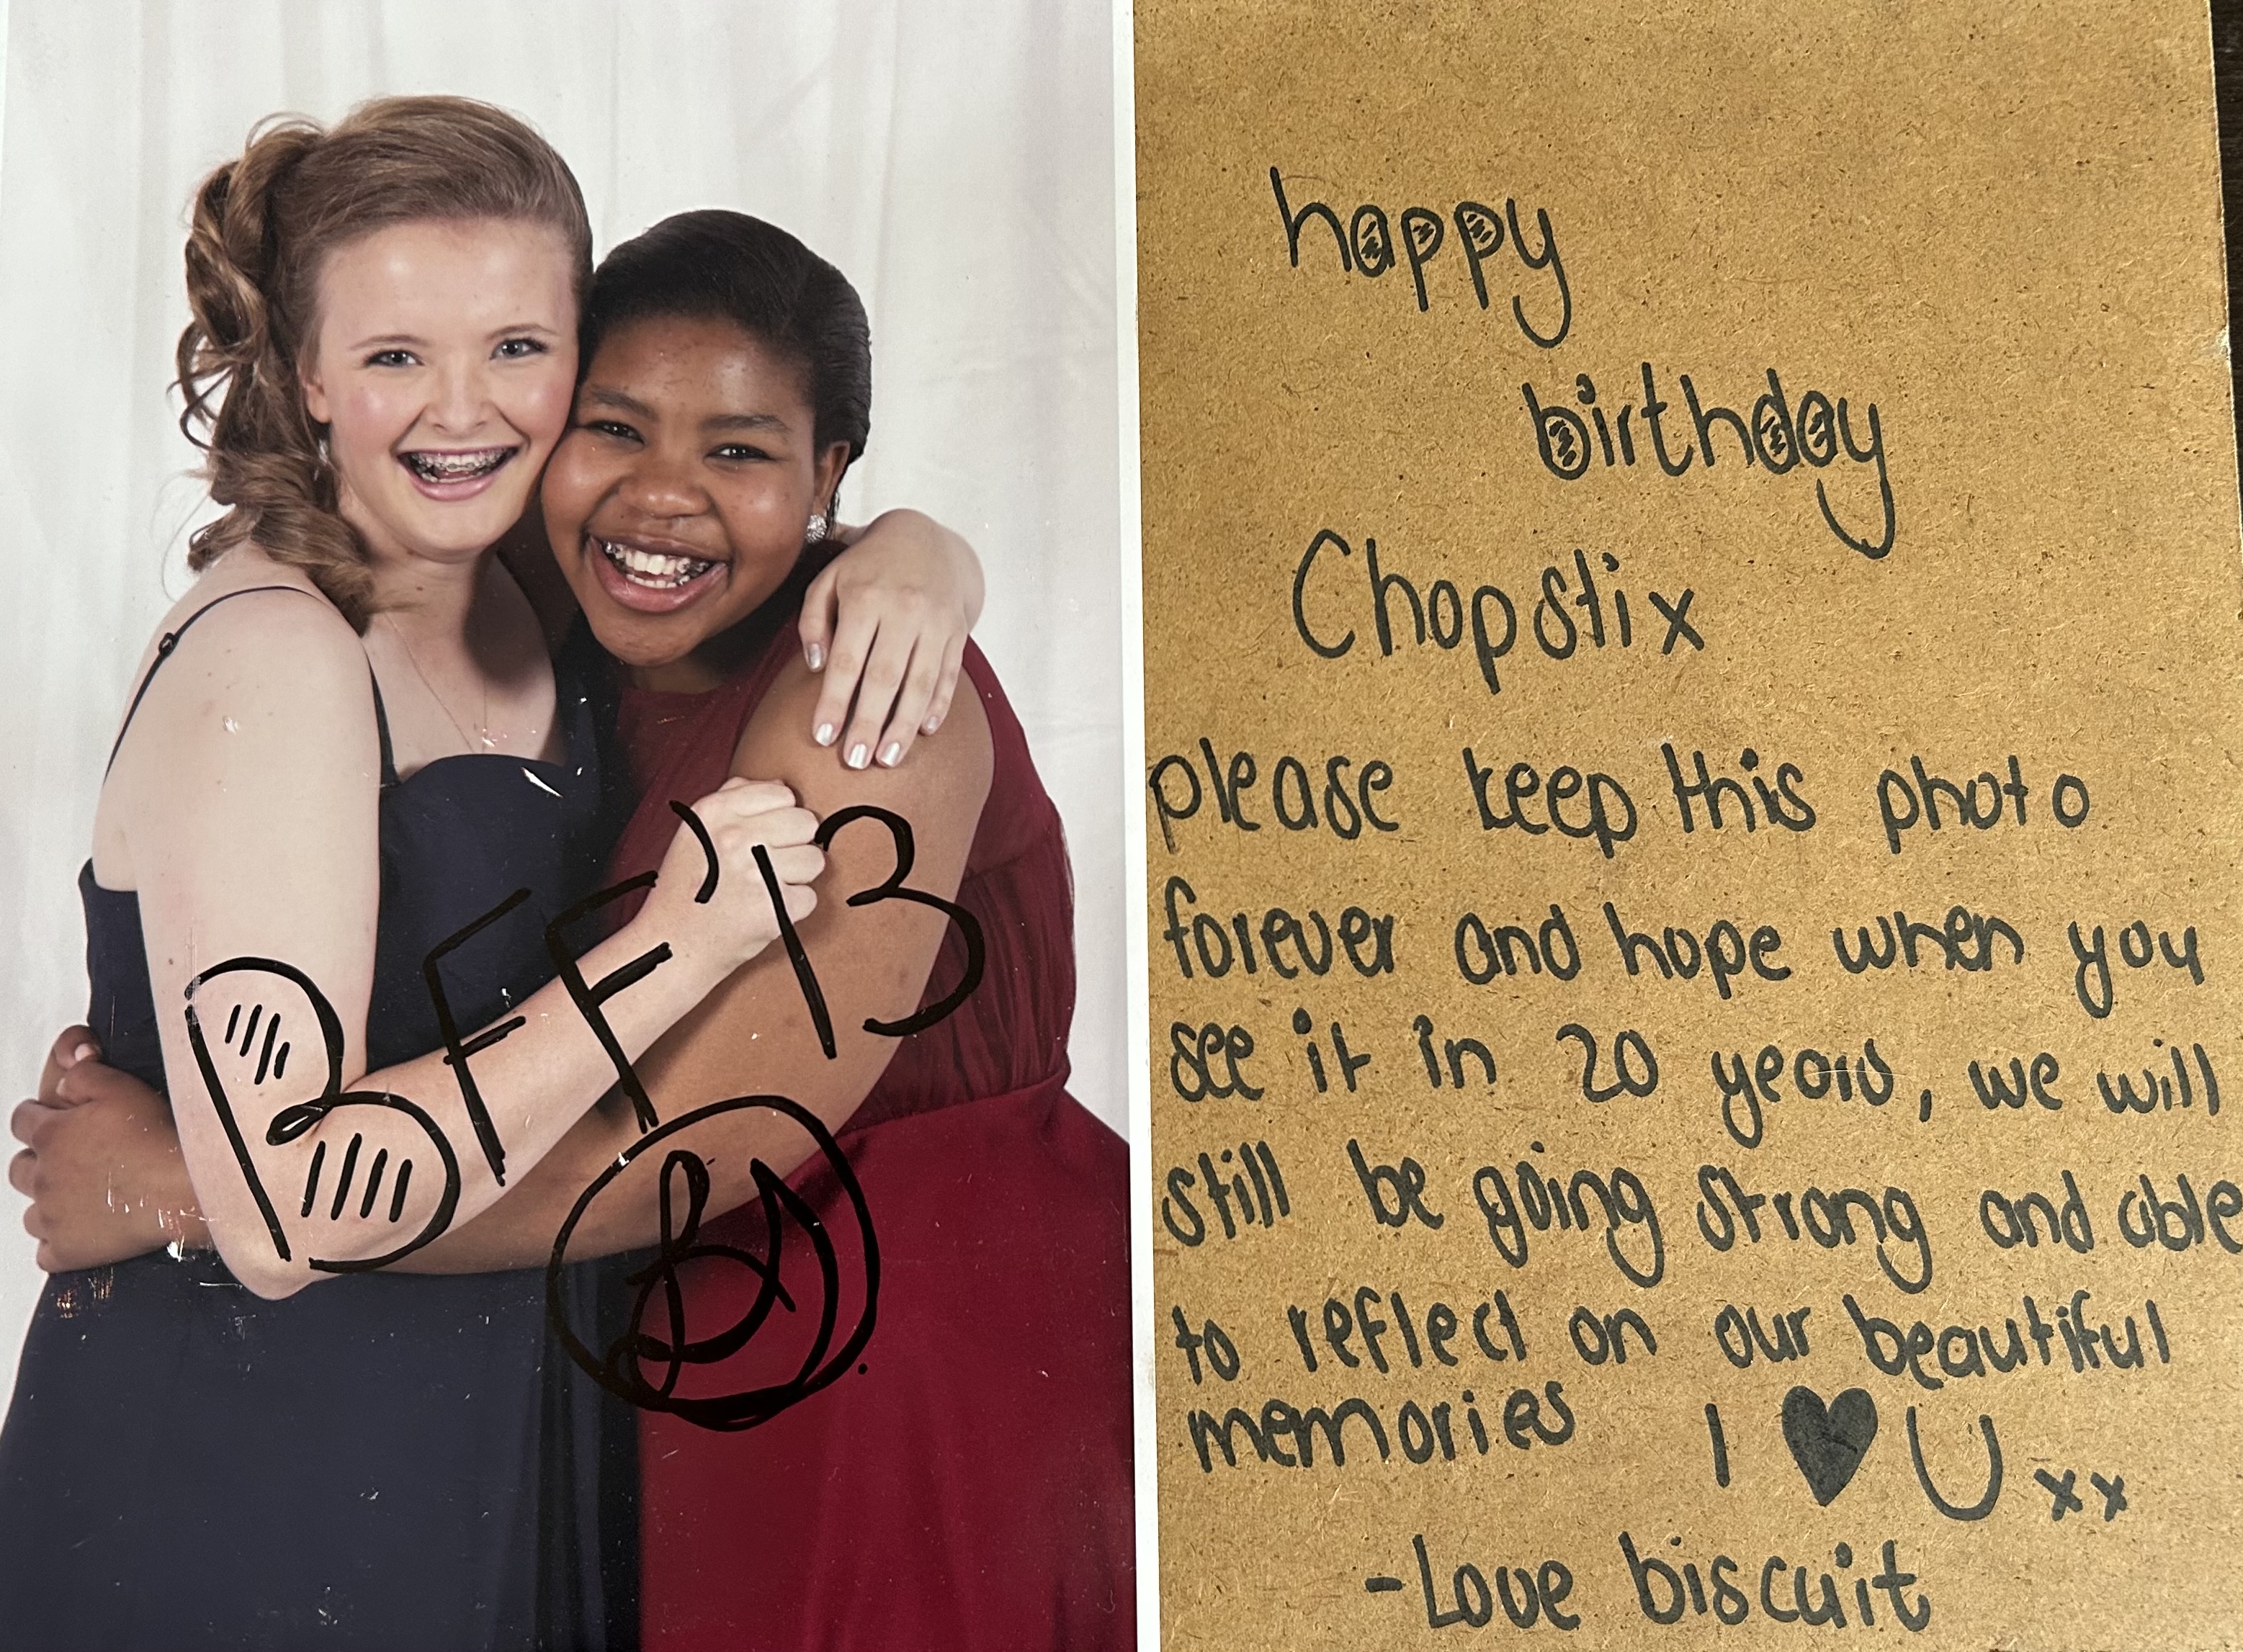 BFF'13
happy
birthday
Chopstix
please keep this photo
forever and hope when you
see it in 20 years, we will
still be going strong and able
to reflect on our beautiful
memories I ♥ U xx
-Love biscuit